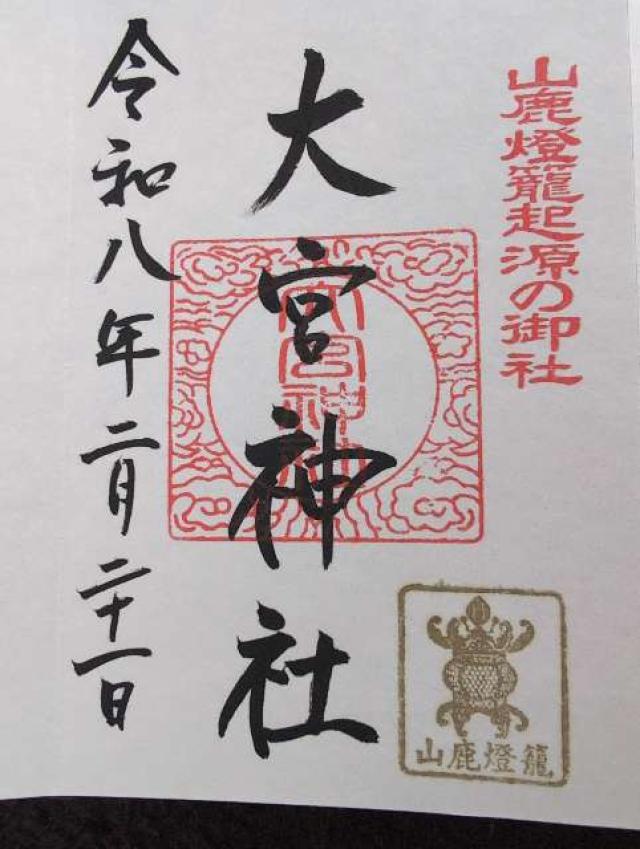 山鹿燈籠起源の御社
大宮神社
令和八年二月二十一日
山鹿燈籠